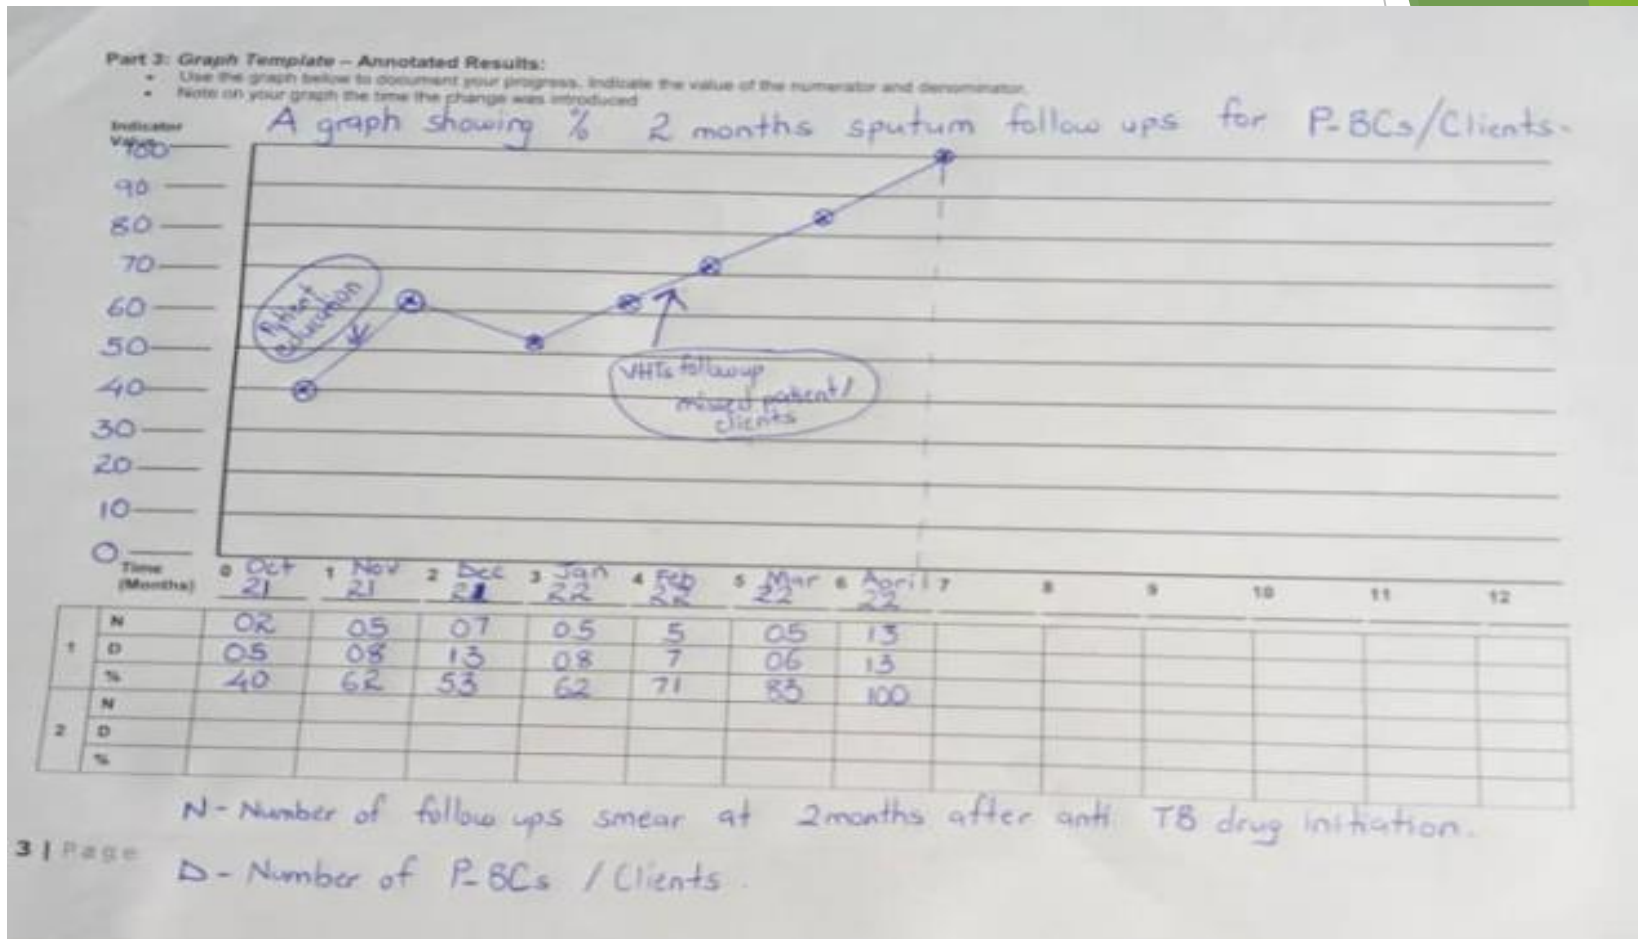 Part 3: Graph Template – Annotated Results:
• Use the graph below to document your progress. Indicate the value of the numerator and denominator.
• Note on your graph the time the change was introduced
A graph showing % 2 months sputum follow ups for P-BCs/Clients-
Indicator
Value
100
90
80
70
60
50
40
30
20
10
0
Patient
education
VHTs followup
missed patient/
clients
Time
(Months)
0 Oct 1 Nov 2 Dec 3 Jan 4 Feb 5 Mar 6 April 7 8 9 10 11 12
21 21 21 22 22 22 22
1
N 02 05 07 05 5 05 13
D 05 08 13 08 7 06 13
% 40 62 53 62 71 83 100
2
N
D
%
N - Number of follow ups smear at 2months after anti TB drug initiation.
3 | Page
D - Number of P-BCs / Clients.